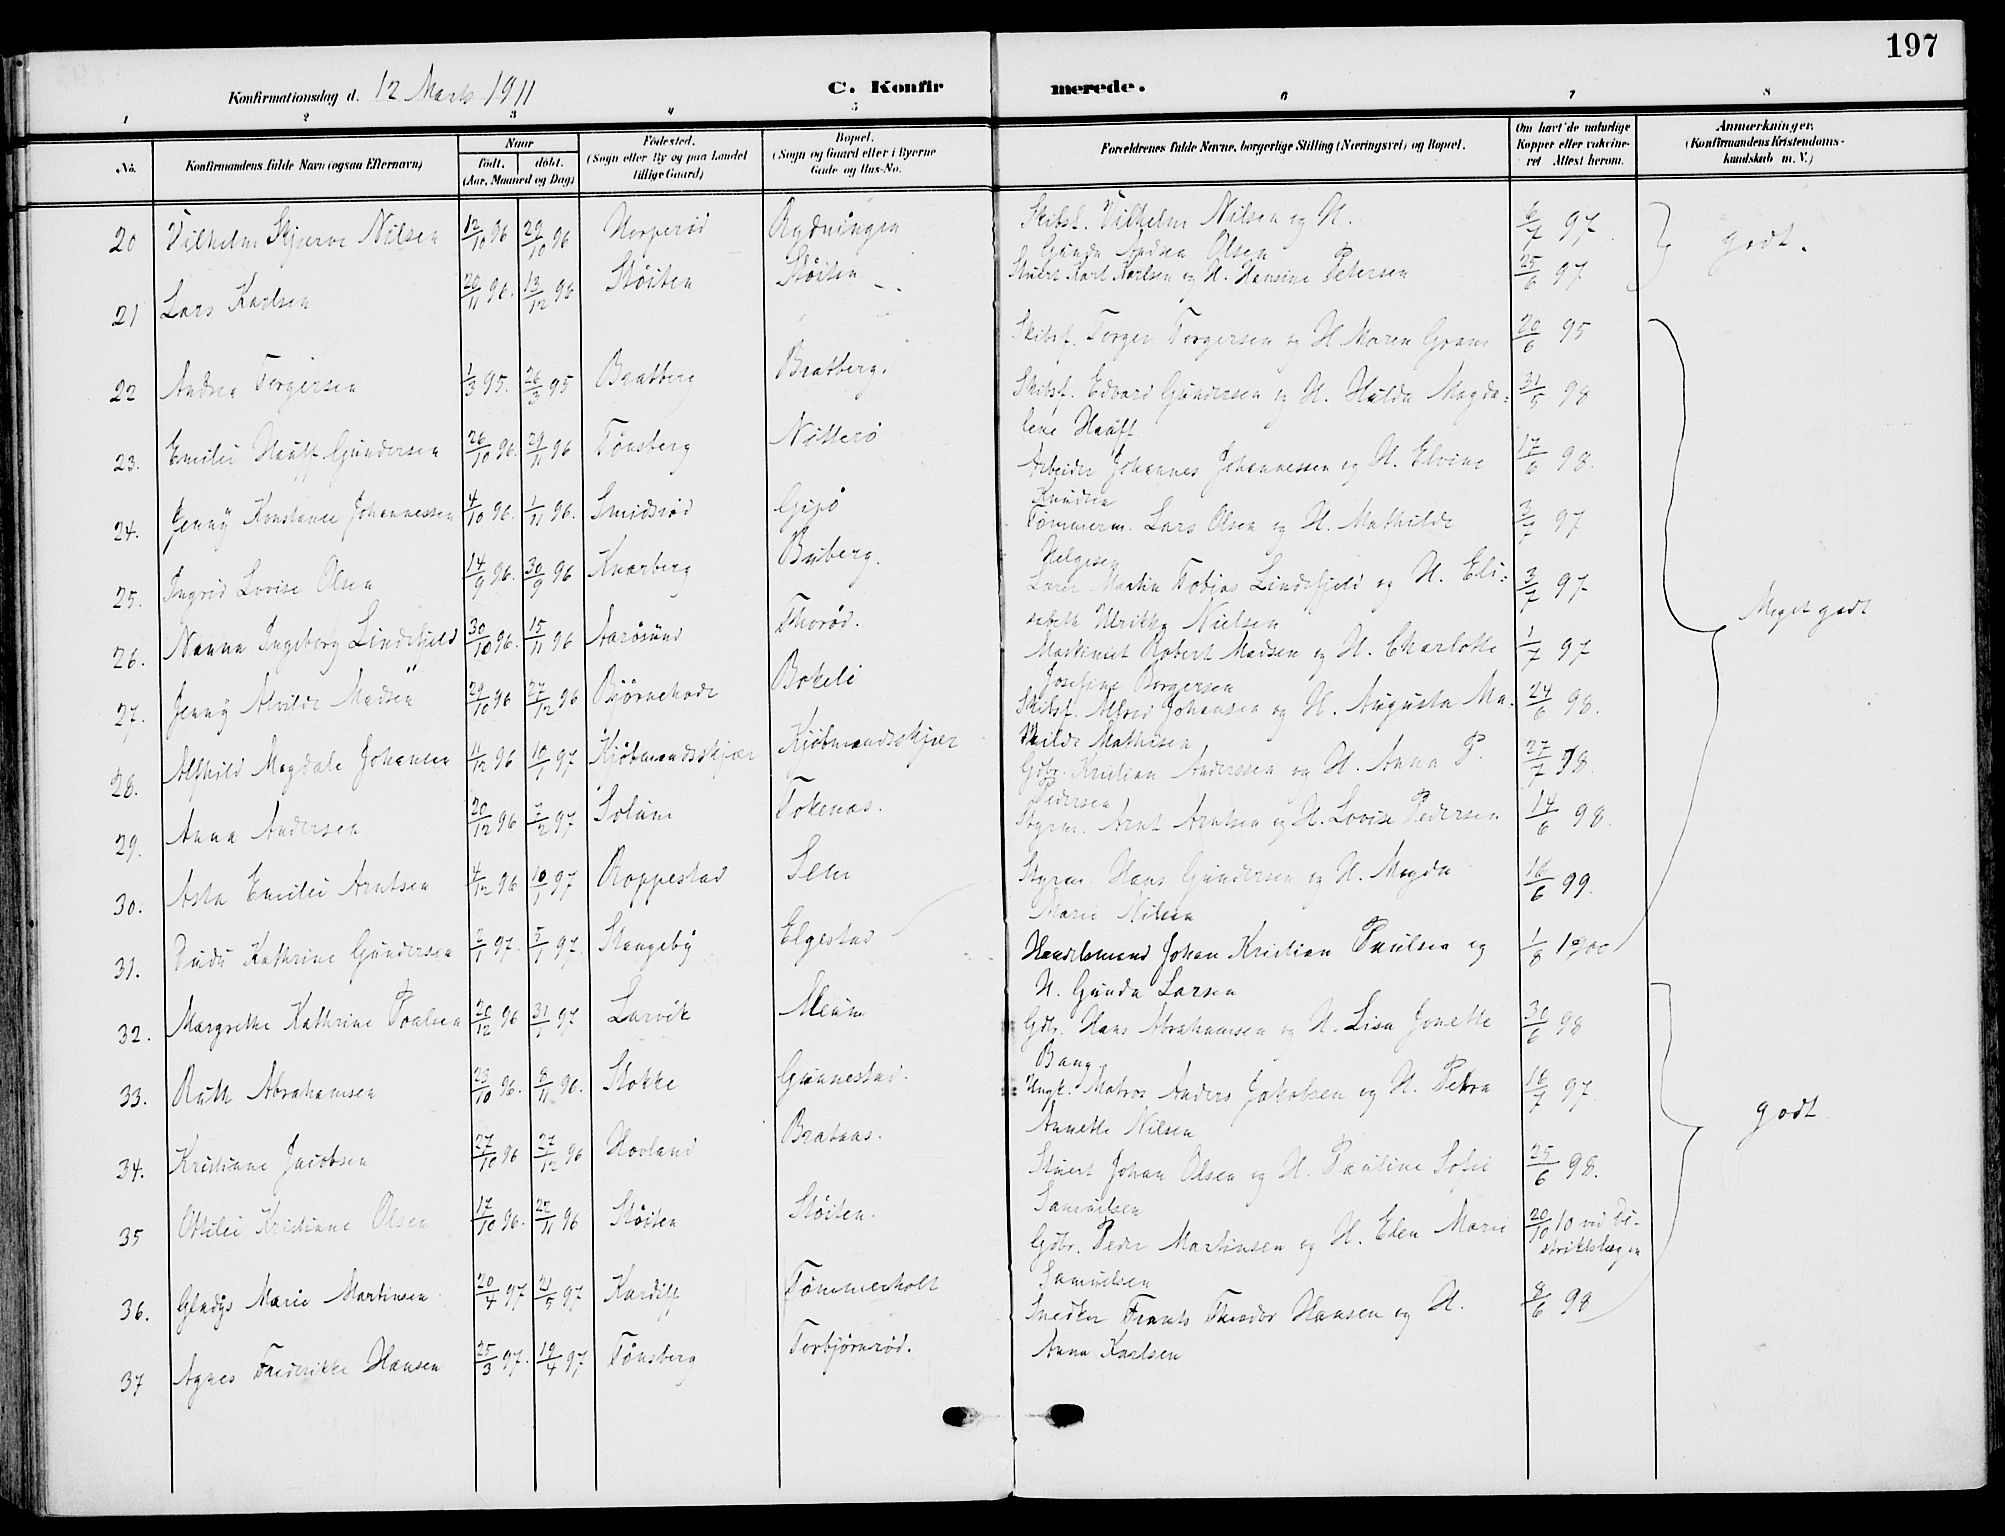 197
Konfirmationsdag d. 12 Marts 1911 C. Konfirmerede.
1 2 3 4 5 6 7 8
No. Konfirmandens fulde Navn (ogsaa Efternavn) Naar født. døbt. (Aar, Maaned og Dag) Fødested. (Sogn eller By og paa Landet tillige Gaard) Bopæl. (Sogn og Gaard eller i Byerne Gade og Hus-No. Forældrenes fulde Navne, borgerlige Stilling (Næringsvei) og Bopæl. Om havt de naturlige Kopper eller vaccineret Attest herom. Anmærkninger. (Konfirmandens Kristendomskundskab m. V.)
20 Vilhelm Skjerve Nilsen 12/10 96 29/10 96 Horperød Rydningen Skibsf. Vilhelm Nilsen og H. 6/7 97 godt.
Gunda Andrea Olsen
21 Lars Karlsen 20/11 96. 13/12 96 Støiten Støiten Stuert Karl Karlsen og H. Hansine Petersen 25/6 97
22 Andrea Torgersen 1/3 95. 26/3 95 Bratberg Bratberg. Skibsf. Torger Torgersen og H. Maren Gram 20/6 95
23. Emilie Hauff Gundersen 26/10 96. 29/11 96 Tønsberg Nøtterø Skibsf. Edvard Gundersen og H. Hulda Magda= 31/5 98
lene Hauff
24. Jenny Konstance Johannessen 4/10 96. 1/11 96. Smidsrød Gipø Arbeider Johannes Johannessen og H. Elvine 17/6 98.
Knudsen
25. Ingrid Lovise Olsen 14/9 96. 30/9 96 Knarberg Buberg. Tømmerm. Lars Olsen og H. Mathilde 3/7 97
Helgesen
26. Nanna Ingeborg Lindefjeld 30/10 96. 15/11 96 Aarøsund Thorød. Lærer Martin Tobias Lindefjeld og H. Eli= 3/7 97 Meget godt
sabeth Ulrikke Nielsen
27. Jenny Alvilde Madsen 29/10 96 27/12 96 Bjørnehode Bokeli Maskinist Robert Madsen og H. Charlotte 1/7 97
Josefine Borgersen
28. Alfhild Magdale Johansen 11/12 96 10/1 97 Kjøbmandsskjær Kjøbmandsskjær Skibsf. Alfred Johansen og H. Augusta Ma- 24/6 98.
thilde Mathisen
29. Anna Andersen 20/12 96 7/2 97 Solum Tokenas. Gdbr. Kristian Anderssen og H. Anna P. 27/7 98.
Pedersen
30. Asta Emilie Arntsen 4/12 96 10/1 97 Roppestad Sem Styrm. Arnt Arntsen og H. Lovise Pedersen 14/6 98.
31. Dudu Kathrine Gundersen 2/1 97. 5/1 97. Stangeby Elgestad Styrm. Hans Gundersen og H. Magda 16/6 99.
Marie Nilsen
32. Margrethe Kathrine Poulsen 20/12 96 31/1 97 Larvik Meum Handelsmand Johan Kristian Paulsen og 1/8 1900
H. Gunda Larsen
33. Ruth Abrahamsen 23/10 96. 8/11 96. Stokke Gunnestad. Gdbr. Hans Abrahamsen og H. Lisa Jonette 30/6 98
Bang
34. Kristiane Jacobsen 27/10 96 27/12 96 Hovland Brataas. Ungk. Matros Anders Jakobsen og H. Petra 16/7 97 godt
Annette Nilsen
35 Ottilie Kristiane Olsen 17/10 96. 22/11 96 Støiten Støiten. Stuert Johan Olsen og H. Pauline Sofie 25/6 98.
Samuelsen
36. Gladys Marie Martinsen 20/4 97 21/5 97 Kardiff Tømmerholt Gdbr. Peder Martinsen og H. Elen Marie 20/10 10 ved Di-
Samuelsen striktslægen
37 Agnes Frederikke Hansen 25/3 97. 19/4 97 Tønsberg Torbjørnrød. Snedker Frants Theodor Hansen og H. 8/6 98
Anna Karlsen